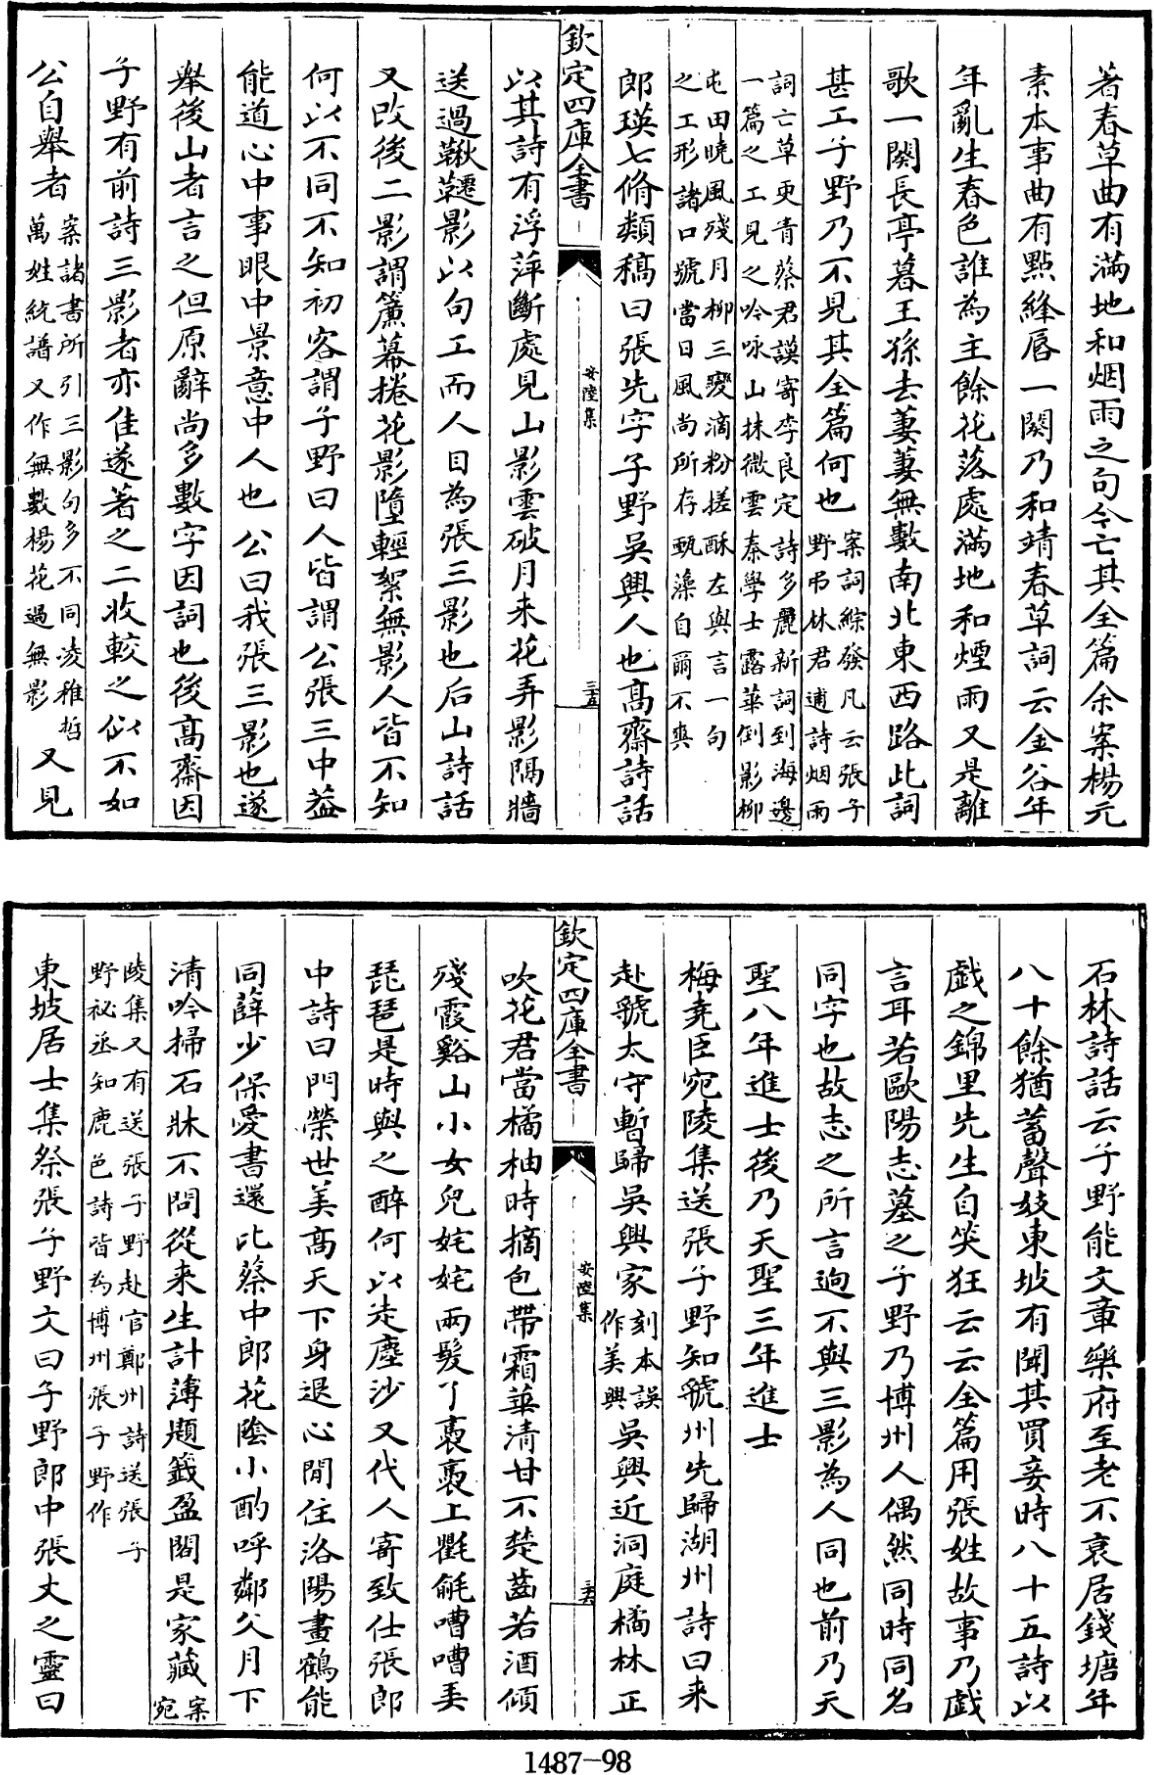 著春草曲有滿地和烟雨之句今亡其全篇余案楊元
素本事曲有點絳唇一闋乃和靖春草詞云金谷年
年亂生春色誰為主餘花落處滿地和煙雨又是離
歌一闋長亭暮王孫去萋萋無數南北東西路此詞
甚工子野乃不見其全篇何也案詞綜發凡云張子
野弔林君逋詩烟雨
詞亡草更青蔡君謨寄李良定詩多麗新詞到海邊
一篇之工見之吟咏山抹微雲秦學士露華倒影柳
屯田曉風殘月柳三變滴粉搓酥左與言一句
之工形諸口號當日風尚所存甄藻自爾不爽
郎瑛七脩類稿曰張先字子野吳興人也高齋詩話
欽定四庫全書
安陸集
三五
以其詩有浮萍斷處見山影雲破月来花弄影隔牆
送過鞦韆影以句工而人目為張三影也后山詩話
又改後二影謂簾幕捲花影墮輕絮無影人皆不知
何以不同不知初客謂子野曰人皆謂公張三中葢
能道心中事眼中景意中人也公曰我張三影也遂
舉後山者言之但原辭尚多數字因詞也後高齋因
子野有前詩三影者亦佳遂著之二收較之似不如
公自舉者案諸書所引三影句多不同凌稚哲
萬姓統譜又作無數楊花過無影又見
石林詩話云子野能文章樂府至老不衰居錢塘年
八十餘猶蓄聲妓東坡有聞其買妾時八十五詩以
戲之錦里先生自笑狂云云全篇用張姓故事乃戲
言耳若歐陽志墓之子野乃博州人偶然同時同名
同字也故志之所言逈不與三影為人同也前乃天
聖八年進士後乃天聖三年進士
梅堯臣宛陵集送張子野知虢州先歸湖州詩曰来
赴虢太守暫歸吳興家刻本誤
作美興吳興近洞庭橘林正
欽定四庫全書
安陸集
三六
吹花君當橘柚時摘包帶霜華清甘不楚齒若酒傾
殘霞谿山小女兒姹姹兩髮丫裛裛上氍毹嘈嘈弄
琵琶是時與之醉何以走塵沙又代人寄致仕張郎
中詩曰門榮世美高天下身退心閒住洛陽畫鶴能
同薛少保愛書還比蔡中郎花陰小酌呼鄰父月下
清吟掃石牀不問從来生計薄題籤盈閣是家藏案
宛
陵集又有送張子野赴官鄭州詩送張子
野祕丞知鹿邑詩皆為博州張子野作
東坡居士集祭張子野文曰子野郎中張丈之靈曰
1487-98